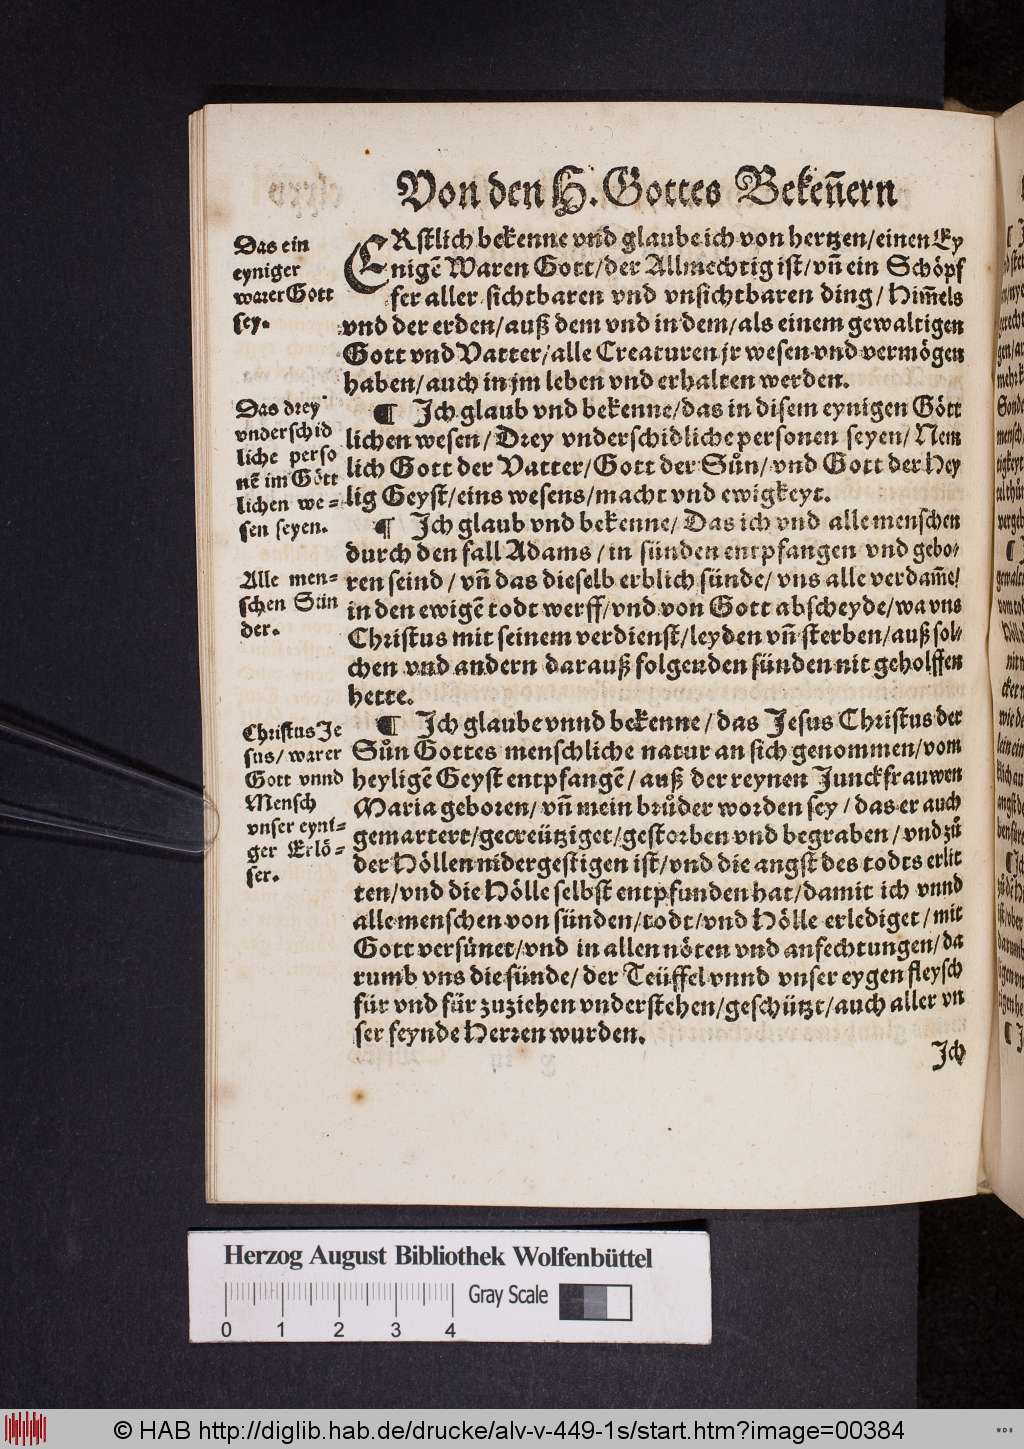 Von den H. Gottes Bekeñern
Das ein
eyniger
warer Gott
sey.
ERstlich bekenne vnd glaube ich von hertzen/einen Ey
nigẽ Waren Gott/der Allmechtig ist/vñ ein Schöpf
fer aller sichtbaren vnd vnsichtbaren ding/Him̃els
vnd der erden/auß dem vnd in dem/als einem gewaltigen
Gott vnd Vatter/alle Creaturen jr wesen vnd vermögen
haben/auch in jm leben vnd erhalten werden.
Das drey
vnderschid
liche perso
nẽ im Gött
lichen we-
sen seyen.
¶ Ich glaub vnd bekenne/das in disem eynigen Gött
lichen wesen/Drey vnderschidliche personen seyen/Nem
lich Gott der Vatter/Gott der Sůn/vnd Gott der Hey
lig Geyst/eins wesens/macht vnd ewigkeyt.
Alle men-
schen Sün
der.
¶ Ich glaub vnd bekenne/Das ich vnd alle menschen
durch den fall Adams/in sünden entpfangen vnd gebo-
ren seind/vñ das dieselb erblich sünde/vns alle verdam̃e/
in den ewigẽ todt werff/vnd von Gott abscheyde/wa vns
Christus mit seinem verdienst/leyden vñ sterben/auß sol-
chen vnd andern darauß folgenden sünden nit geholffen
hette.
Christus Je
sus/warer
Gott vnnd
Mensch
vnser eyni-
ger Erlö-
ser.
¶ Ich glaube vnnd bekenne/das Jesus Christus der
Sůn Gottes menschliche natur an sich genommen/vom
heyligẽ Geyst entpfangẽ/auß der reynen Junckfrauwen
Maria geboren/vñ mein brůder worden sey/das er auch
gemartert/gecreütziget/gestorben vnd begraben/vnd zů
der Höllen nidergestigen ist/vnd die angst des todts erlit
ten/vnd die Hölle selbst entpfunden hat/damit ich vnnd
alle menschen von sünden/todt/vnd Hölle erlediget/mit
Gott versünet/vnd in allen nöten vnd anfechtungen/da
rumb vns die sünde/der Teüffel vnnd vnser eygen fleysch
für vnd für zuziehen vnderstehen/geschützt/auch aller vn
ser feynde Herren wurden.
Ich
Herzog August Bibliothek Wolfenbüttel
Gray Scale
0 1 2 3 4
© HAB http://diglib.hab.de/drucke/alv-v-449-1s/start.htm?image=00384